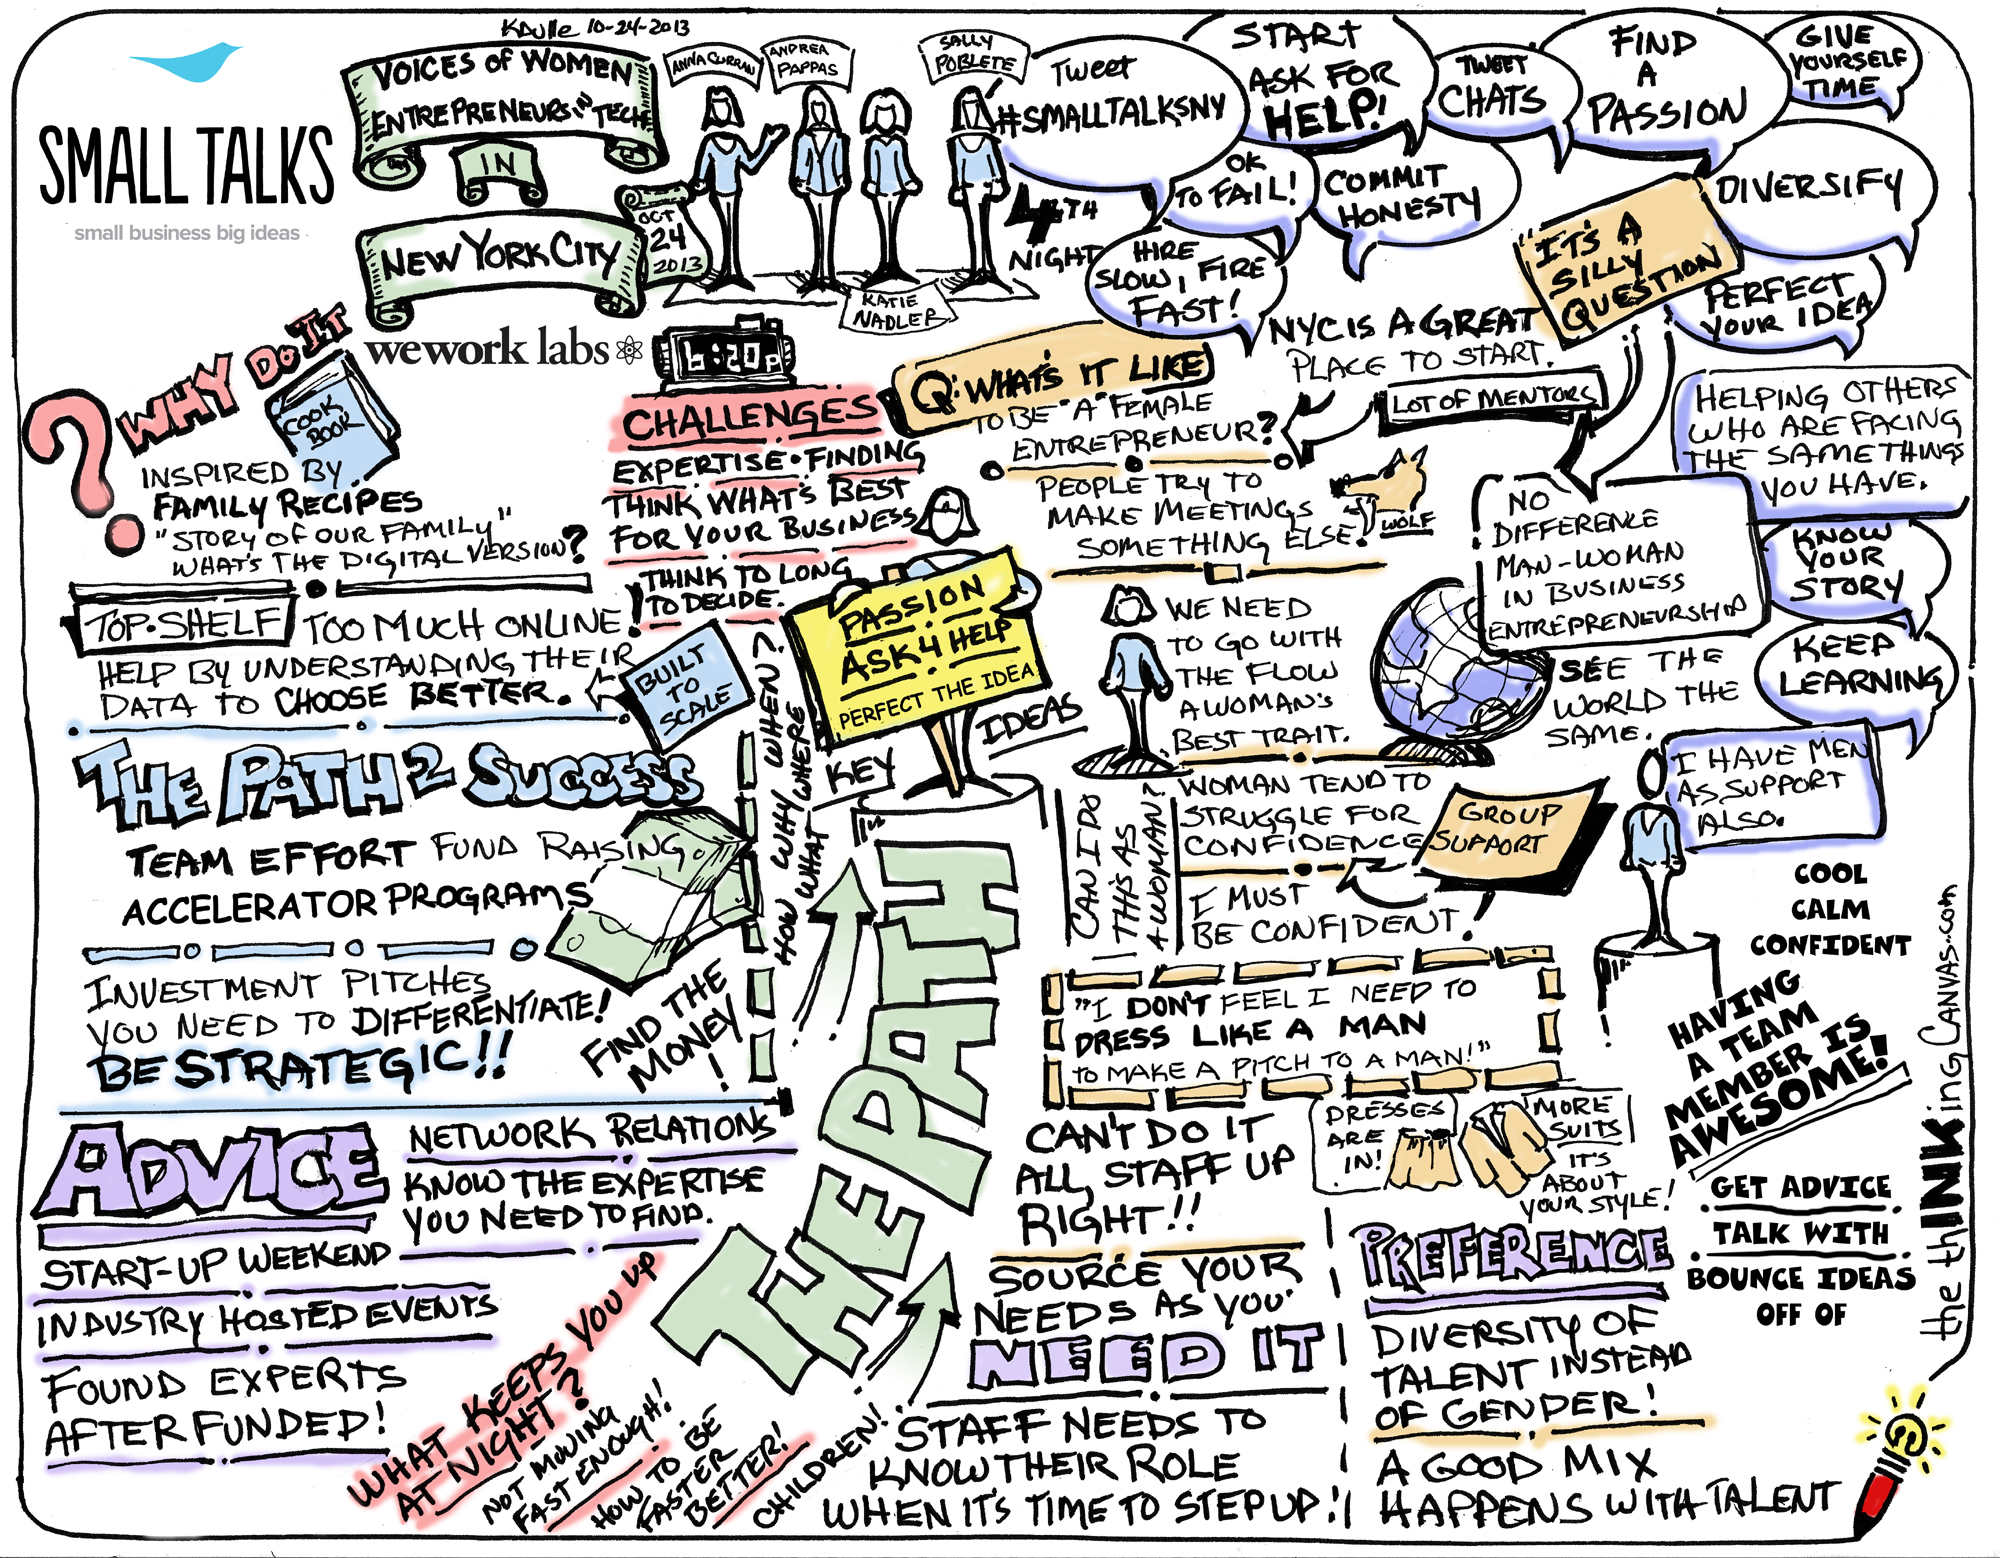 Kaville 10-24-2013
SMALL TALKS
small business big ideas
VOICES of WOMEN
ENTREPRENEURS IN TECH
IN
NEW YORK CITY
OCT
24
2013
wework labs
ANNA CURRAN
ANDREA
PAPPAS
SALLY
POBLETE
KATIE
NADLER
4TH
NIGHT
Tweet
#SMALLTALKSNY
START
ASK FOR
HELP!
TWEET
CHATS
FIND
A
PASSION
GIVE
YOURSELF
TIME
OK
TO FAIL!
COMMIT
HONESTY
DIVERSIFY
HIRE
SLOW, FIRE
FAST!
"IT'S A
SILLY
QUESTION
PERFECT
YOUR IDEA
NYC IS A GREAT
PLACE TO START.
LOT OF MENTORS
HELPING OTHERS
WHO ARE FACING
THE SAME THINGS
YOU HAVE.
NO
DIFFERENCE
MAN-WOMAN
IN BUSINESS
ENTREPRENEURSHIP
KNOW
YOUR
STORY
KEEP
LEARNING
SEE THE
WORLD THE
SAME.
I HAVE MEN
AS SUPPORT
ALSO.
?
WHY DO IT
COOK
BOOK
INSPIRED BY
FAMILY RECIPES
"STORY OF OUR FAMILY"
WHAT'S THE DIGITAL VERSION?
TOP-SHELF TOO MUCH ONLINE!
HELP BY UNDERSTANDING THEIR
DATA TO CHOOSE BETTER.
BUILT
TO
SCALE
6:20p
CHALLENGES
EXPERTISE • FINDING
THINK WHAT'S BEST
FOR YOUR BUSINESS
THINK TO LONG
TO DECIDE.
PASSION
ASK 4 HELP
PERFECT THE IDEA
KEY
IDEAS
HOW WHY WHEN?
WHAT WHERE
Q: WHAT'S IT LIKE
TO BE "A" FEMALE
ENTREPRENEUR?
PEOPLE TRY TO
MAKE MEETINGS
SOMETHING ELSE!
WOLF
WE NEED
TO GO WITH
THE FLOW
A WOMAN'S
BEST TRAIT.
WOMAN TEND TO
STRUGGLE FOR
CONFIDENCE
GROUP
SUPPORT
CAN I DO
THIS AS
A WOMAN?
I MUST
BE CONFIDENT.
"I DON'T FEEL I NEED TO
DRESS LIKE A MAN
TO MAKE A PITCH TO A MAN!"
DRESSES
ARE
IN!
MORE
SUITS
IT'S
ABOUT
YOUR STYLE!
COOL
CALM
CONFIDENT
HAVING
A TEAM
MEMBER IS
AWESOME!
GET ADVICE
TALK WITH
BOUNCE IDEAS
OFF OF
the thINKing CANVAS.com
THE PATH 2 SUCCESS
TEAM EFFORT FUND RAISING
ACCELERATOR PROGRAMS
INVESTMENT PITCHES
YOU NEED TO DIFFERENTIATE!
BE STRATEGIC!!
FIND THE
MONEY
!
THE PATH
ADVICE
NETWORK RELATIONS
KNOW THE EXPERTISE
YOU NEED TO FIND.
START-UP WEEKEND
INDUSTRY HOSTED EVENTS
FOUND EXPERTS
AFTER FUNDED!
WHAT KEEPS YOU UP
AT NIGHT?
NOT MOVING
FAST ENOUGH!
HOW TO BE
FASTER
BETTER!
CHILDREN!
CAN'T DO IT
ALL, STAFF UP
RIGHT!!
SOURCE YOUR
NEEDS AS YOU
NEED IT
STAFF NEEDS TO
KNOW THEIR ROLE
WHEN IT'S TIME TO STEP UP!
PREFERENCE
DIVERSITY OF
TALENT INSTEAD
OF GENDER!
A GOOD MIX
HAPPENS WITH TALENT